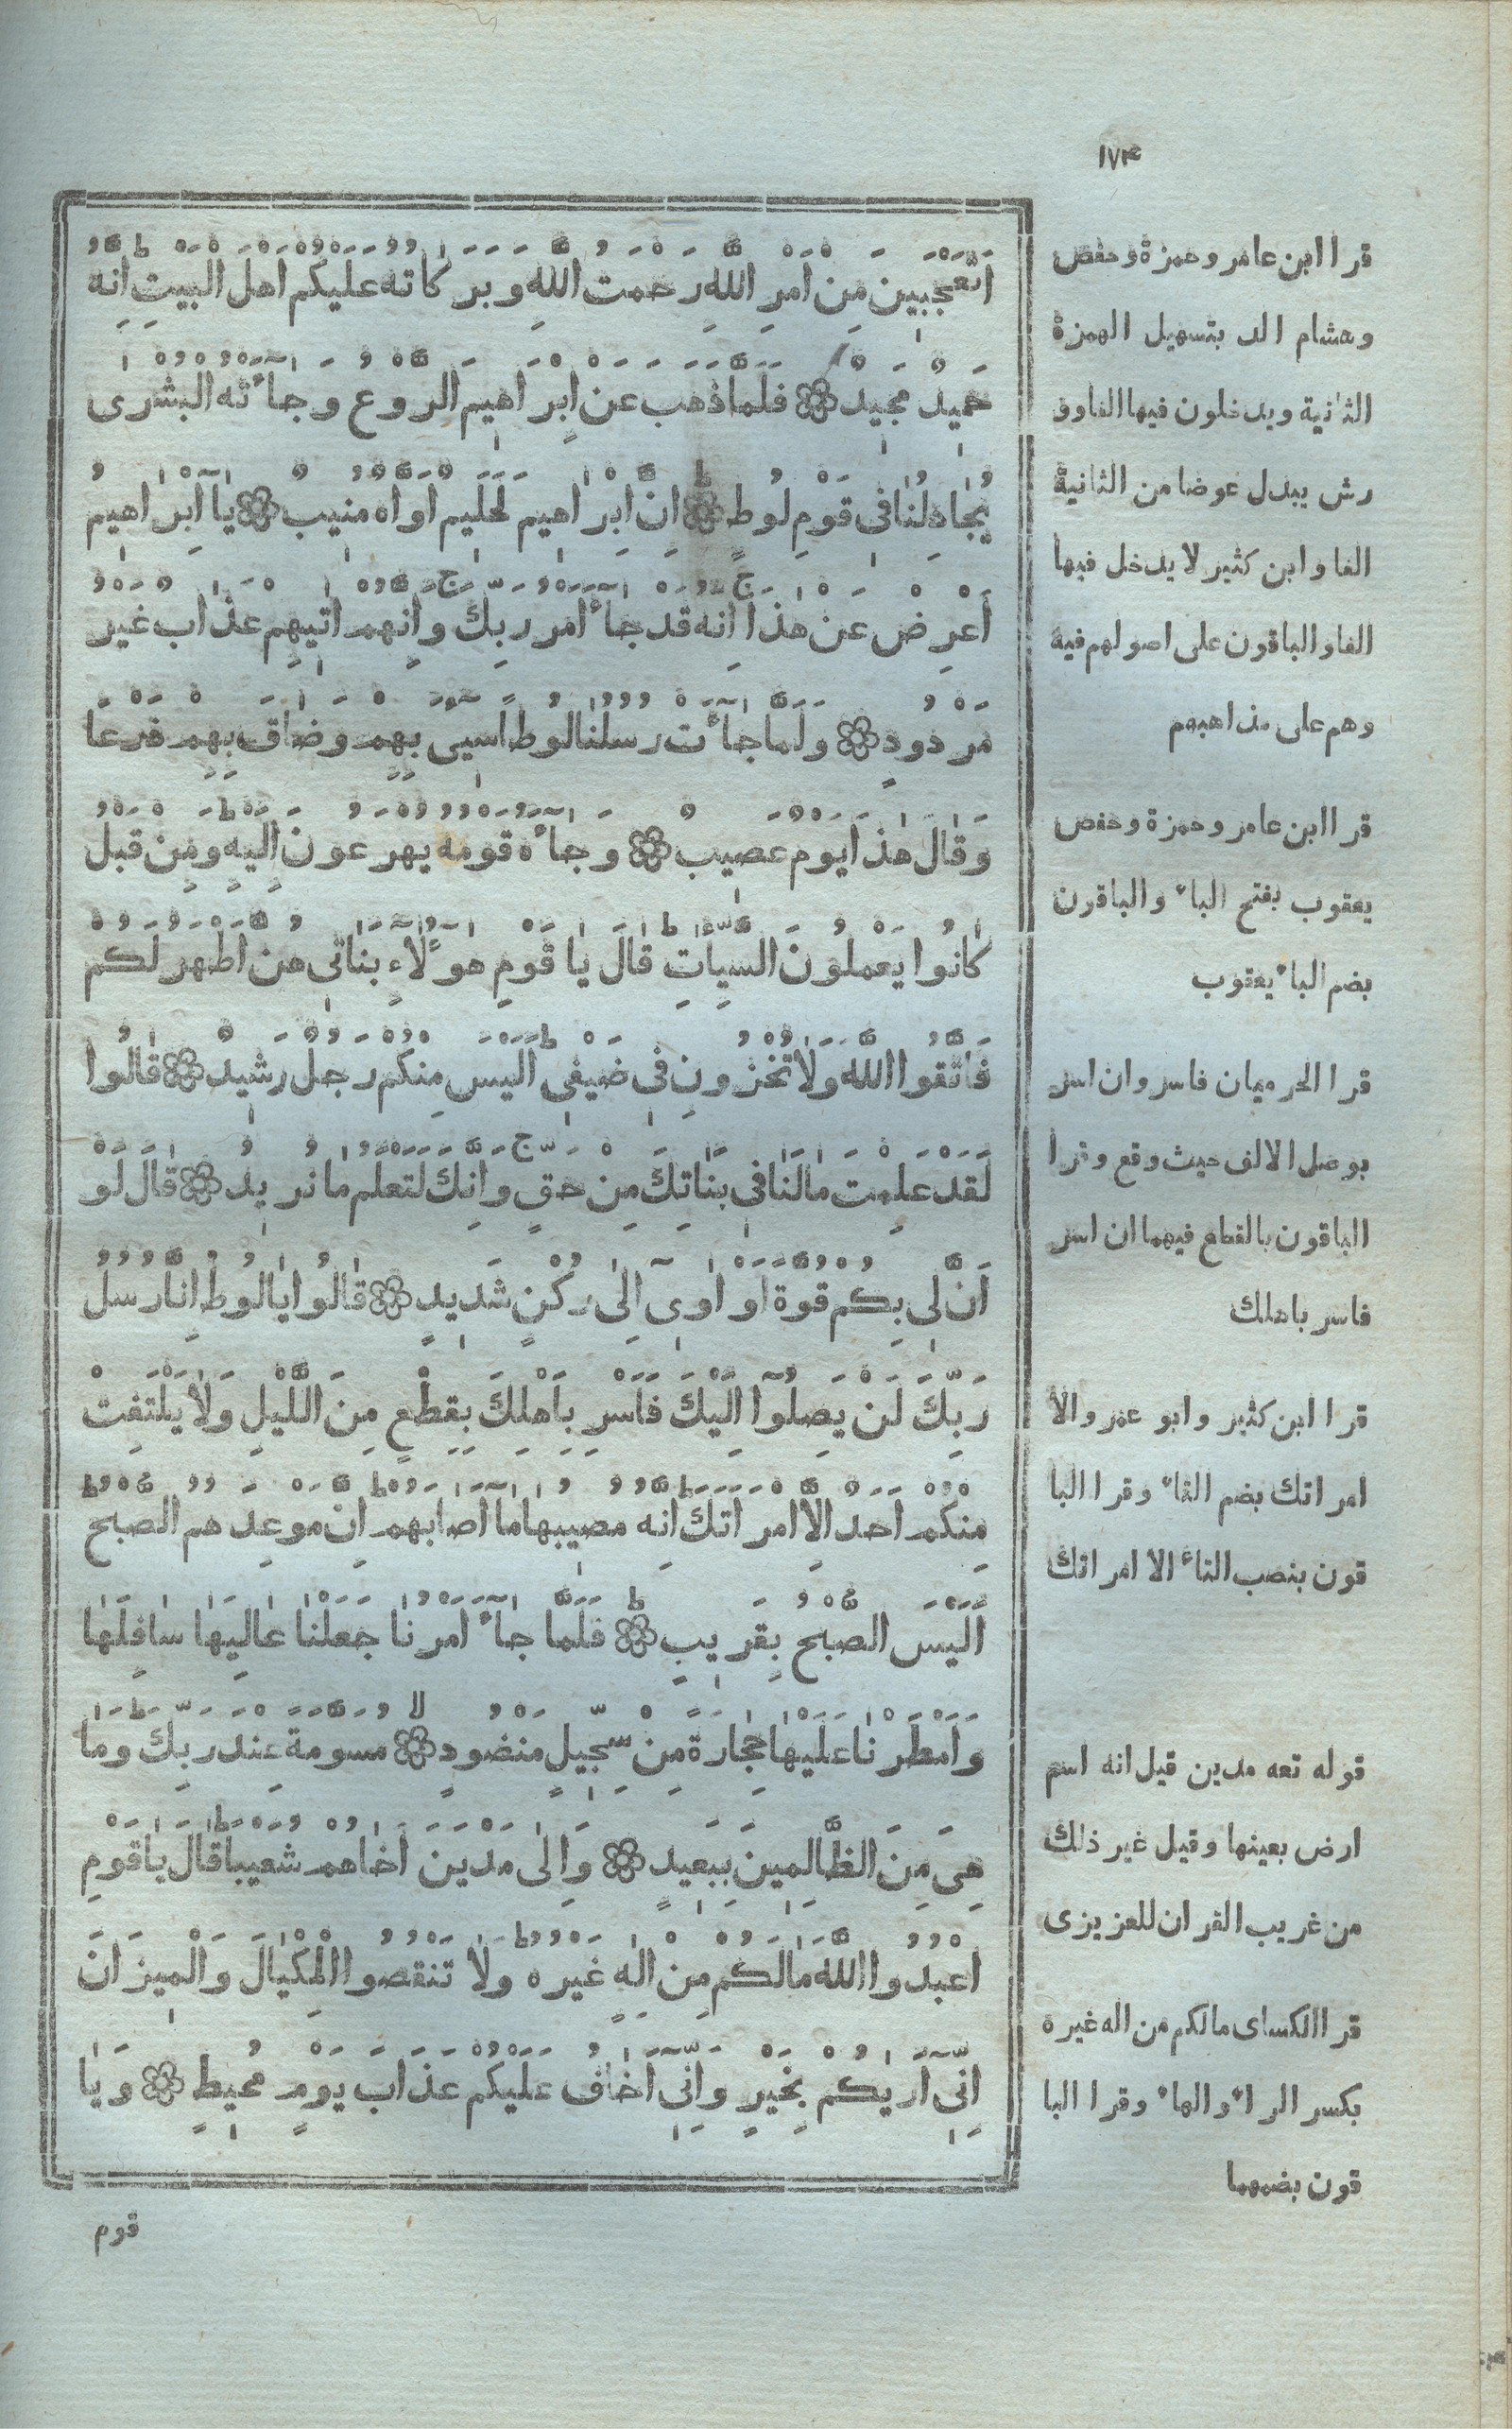 ١٧٣
اَتَعْجَبِينَ مِنْ اَمْرِ اللّٰهِ رَحْمَتُ اللّٰهِ وَبَرَكَاتُهُ عَلَيْكُمْ اَهْلَ الْبَيْتِ اِنَّهُ
حَمِيدٌ مَجِيدٌ ۞ فَلَمَّا ذَهَبَ عَنْ اِبْرَاهِيمَ الرَّوْعُ وَجَآءَتْهُ الْبُشْرٰى
يُجَادِلُنَا فِى قَوْمِ لُوطٍ ۞ اِنَّ اِبْرَاهِيمَ لَحَلِيمٌ اَوَّاهٌ مُنِيبٌ ۞ يَا اِبْرَاهِيمُ
اَعْرِضْ عَنْ هٰذَا اِنَّهُ قَدْ جَآءَ اَمْرُ رَبِّكَ وَاِنَّهُمْ اٰتِيهِمْ عَذَابٌ غَيْرُ
مَرْدُودٍ ۞ وَلَمَّا جَآءَتْ رُسُلُنَا لُوطًا سِيئَ بِهِمْ وَضَاقَ بِهِمْ ذَرْعًا
وَقَالَ هٰذَا يَوْمٌ عَصِيبٌ ۞ وَجَآءَهُ قَوْمُهُ يُهْرَعُونَ اِلَيْهِ وَمِنْ قَبْلُ
كَانُوا يَعْمَلُونَ السَّيِّاٰتِ قَالَ يَا قَوْمِ هٰٓؤُلَآءِ بَنَاتِى هُنَّ اَطْهَرُ لَكُمْ
فَاتَّقُوا اللّٰهَ وَلَا تُخْزُونِ فِى ضَيْفِى اَلَيْسَ مِنْكُمْ رَجُلٌ رَشِيدٌ ۞ قَالُوا
لَقَدْ عَلِمْتَ مَا لَنَا فِى بَنَاتِكَ مِنْ حَقٍّ وَاِنَّكَ لَتَعْلَمُ مَا نُرِيدُ ۞ قَالَ لَوْ
اَنَّ لِى بِكُمْ قُوَّةً اَوْ اٰوِىٓ اِلٰى رُكْنٍ شَدِيدٍ ۞ قَالُوا يَا لُوطُ اِنَّا رُسُلُ
رَبِّكَ لَنْ يَصِلُوٓا اِلَيْكَ فَاَسْرِ بِاَهْلِكَ بِقِطْعٍ مِنَ اللَّيْلِ وَلَا يَلْتَفِتْ
مِنْكُمْ اَحَدٌ اِلَّا امْرَاَتَكَ اِنَّهُ مُصِيبُهَا مَآ اَصَابَهُمْ اِنَّ مَوْعِدَهُمُ الصُّبْحُ
اَلَيْسَ الصُّبْحُ بِقَرِيبٍ ۞ فَلَمَّا جَآءَ اَمْرُنَا جَعَلْنَا عَالِيَهَا سَافِلَهَا
وَاَمْطَرْنَا عَلَيْهَا حِجَارَةً مِنْ سِجِّيلٍ مَنْضُودٍ ۞ مُسَوَّمَةً عِنْدَ رَبِّكَ وَمَا
هِىَ مِنَ الظَّالِمِينَ بِبَعِيدٍ ۞ وَاِلٰى مَدْيَنَ اَخَاهُمْ شُعَيْبًا قَالَ يَا قَوْمِ
اعْبُدُوا اللّٰهَ مَا لَكُمْ مِنْ اِلٰهٍ غَيْرُهُ وَلَا تَنْقُصُوا الْمِكْيَالَ وَالْمِيزَانَ
اِنِّىٓ اَرٰيكُمْ بِخَيْرٍ وَاِنِّىٓ اَخَافُ عَلَيْكُمْ عَذَابَ يَوْمٍ مُحِيطٍ ۞ وَيَا
قوم
قرا ابن عامر وحمزة وحفص
وهشام الد بتسهيل الهمزة
الثانية ويدخلون فيها الفا وو
رش يبدل عوضا من الثانية
الفا وابن كثير لا يدخل فيها
الفا والباقون على اصولهم فيه
وهم على مذاهبهم
قرا ابن عامر وحمزة وحفص
يعقوب بفتح الباء والباقون
بضم الباء يعقوب
قرا الحرميان فاسر وان اسر
بوصل الالف حيث وقع وقرا
الباقون بالقطع فيهما ان اسر
فاسر باهلك
قرا ابن كثير وابو عمر والا
امراتك بضم التاء وقرا البا
قون بنصب التاء الا امراتك
قوله تعه مدين قيل انه اسم
ارض بعينها وقيل غير ذلك
من غريب القران للعزيزى
قرا الكساى مالكم من اله غيره
بكسر الراء والهاء وقرا البا
قون بضمهما